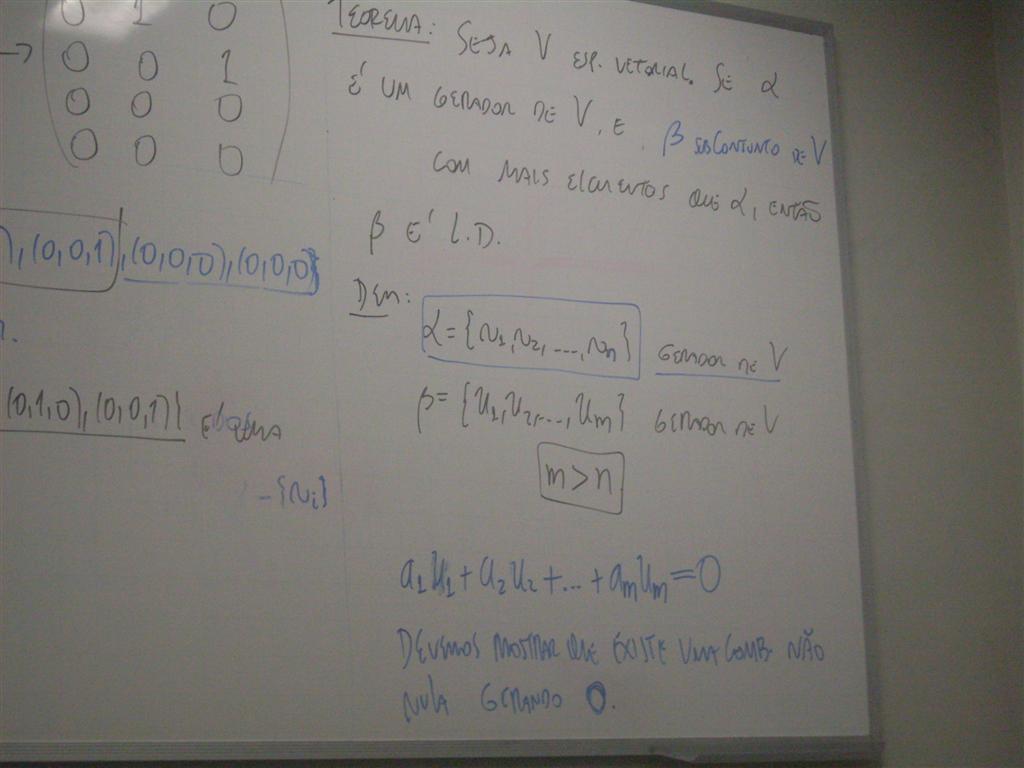 0 1 0
→ 0 0 1
0 0 0
0 0 0
), (0,0,1), (0,0,0), (0,0,0)}
(0,1,0), (0,0,1)} É
- {v_i}
TEOREMA: SEJA V ESP. VETORIAL. SE α
É UM GERADOR DE V, E β SUBCONJUNTO DE V
COM MAIS ELEMENTOS QUE α, ENTÃO
β É L.D.
DEM:
α = {v₁, v₂, ..., vₙ} GERADOR DE V
β = {u₁, u₂, ..., uₘ} GERADOR DE V
m > n
a₁u₁ + a₂u₂ + ... + aₘuₘ = 0
DEVEMOS MOSTRAR QUE EXISTE UMA COMB. NÃO
NULA GERANDO 0.